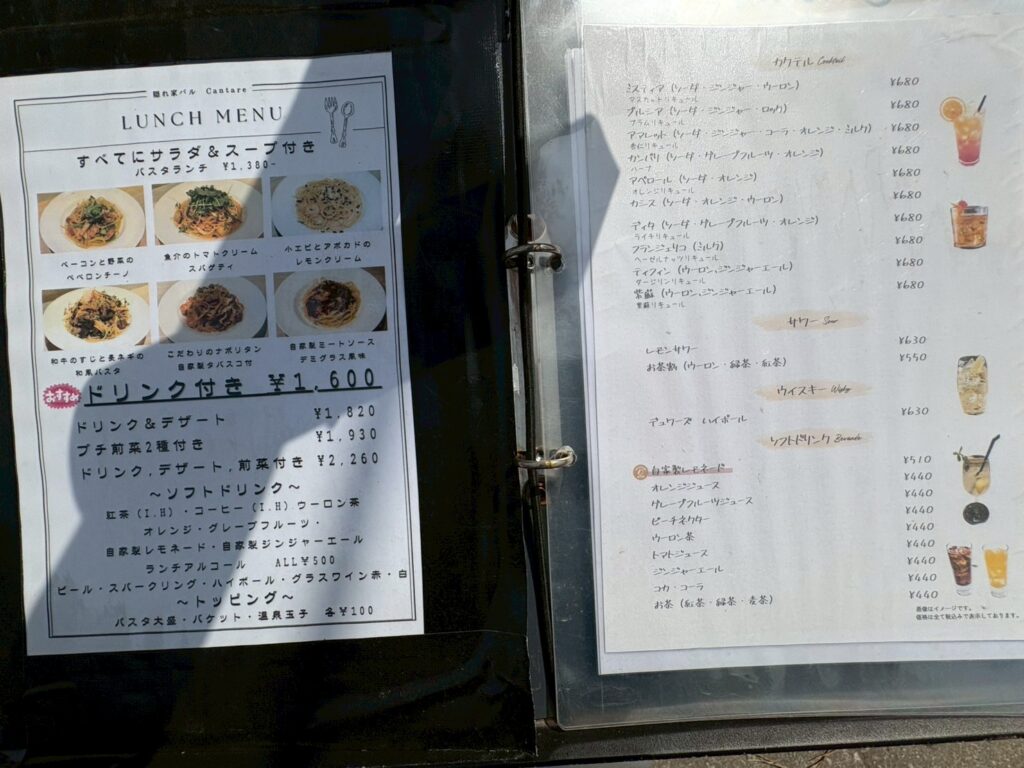 隠れ家バル Cantare
LUNCH MENU
すべてにサラダ&スープ付き
パスタランチ ¥1,380-
ベーコンと野菜の
ペペロンチーノ
魚介のトマトクリーム
スパゲティ
小エビとアボカドの
レモンクリーム
和牛のすじと長ネギの
和風パスタ
こだわりのナポリタン
自家製タバスコ付
自家製ミートソース
デミグラス風味
おすすめ ドリンク付き ¥1,600
ドリンク&デザート ¥1,820
プチ前菜2種付き ¥1,930
ドリンク,デザート,前菜付き ¥2,260
～ソフトドリンク～
紅茶(I.H)・コーヒー(I.H)ウーロン茶
オレンジ・グレープフルーツ・
自家製レモネード・自家製ジンジャーエール
ランチアルコール ALL¥500
ビール・スパークリング・ハイボール・グラスワイン赤・白
～トッピング～
パスタ大盛・バケット・温泉玉子 各¥100
カクテル Cocktail
ミスティア (ソーダ・ジンジャー・ウーロン) ¥680
マスカットリキュール
プルシア (ソーダ・ジンジャー・ロック) ¥680
プラムリキュール
アマレット (ソーダ・ジンジャー・コーラ・オレンジ・ミルク) ¥680
杏仁リキュール
カンパリ (ソーダ・グレープフルーツ・オレンジ) ¥680
ハーブ
アペロール (ソーダ・オレンジ) ¥680
オレンジリキュール
カシス (ソーダ・オレンジ・ウーロン) ¥680
ディタ (ソーダ・グレープフルーツ・オレンジ) ¥680
ライチリキュール
フランジェリコ (ミルク) ¥680
ヘーゼルナッツリキュール
ティフィン (ウーロン,ジンジャーエール) ¥680
ダージリンリキュール
紫蘇 (ウーロン,ジンジャーエール) ¥680
紫蘇リキュール
サワー Sour
レモンサワー ¥630
お茶割 (ウーロン・緑茶・紅茶) ¥550
ウイスキー
デュワーズ ハイボール ¥630
ソフトドリンク
自家製レモネード ¥510
オレンジジュース ¥440
グレープフルーツジュース ¥440
ピーチネクター ¥440
ウーロン茶 ¥440
トマトジュース ¥440
ジンジャーエール ¥440
コカ・コーラ ¥440
お茶 (紅茶・緑茶・麦茶) ¥440
画像はイメージです。
価格は全て税込みで表示しております。